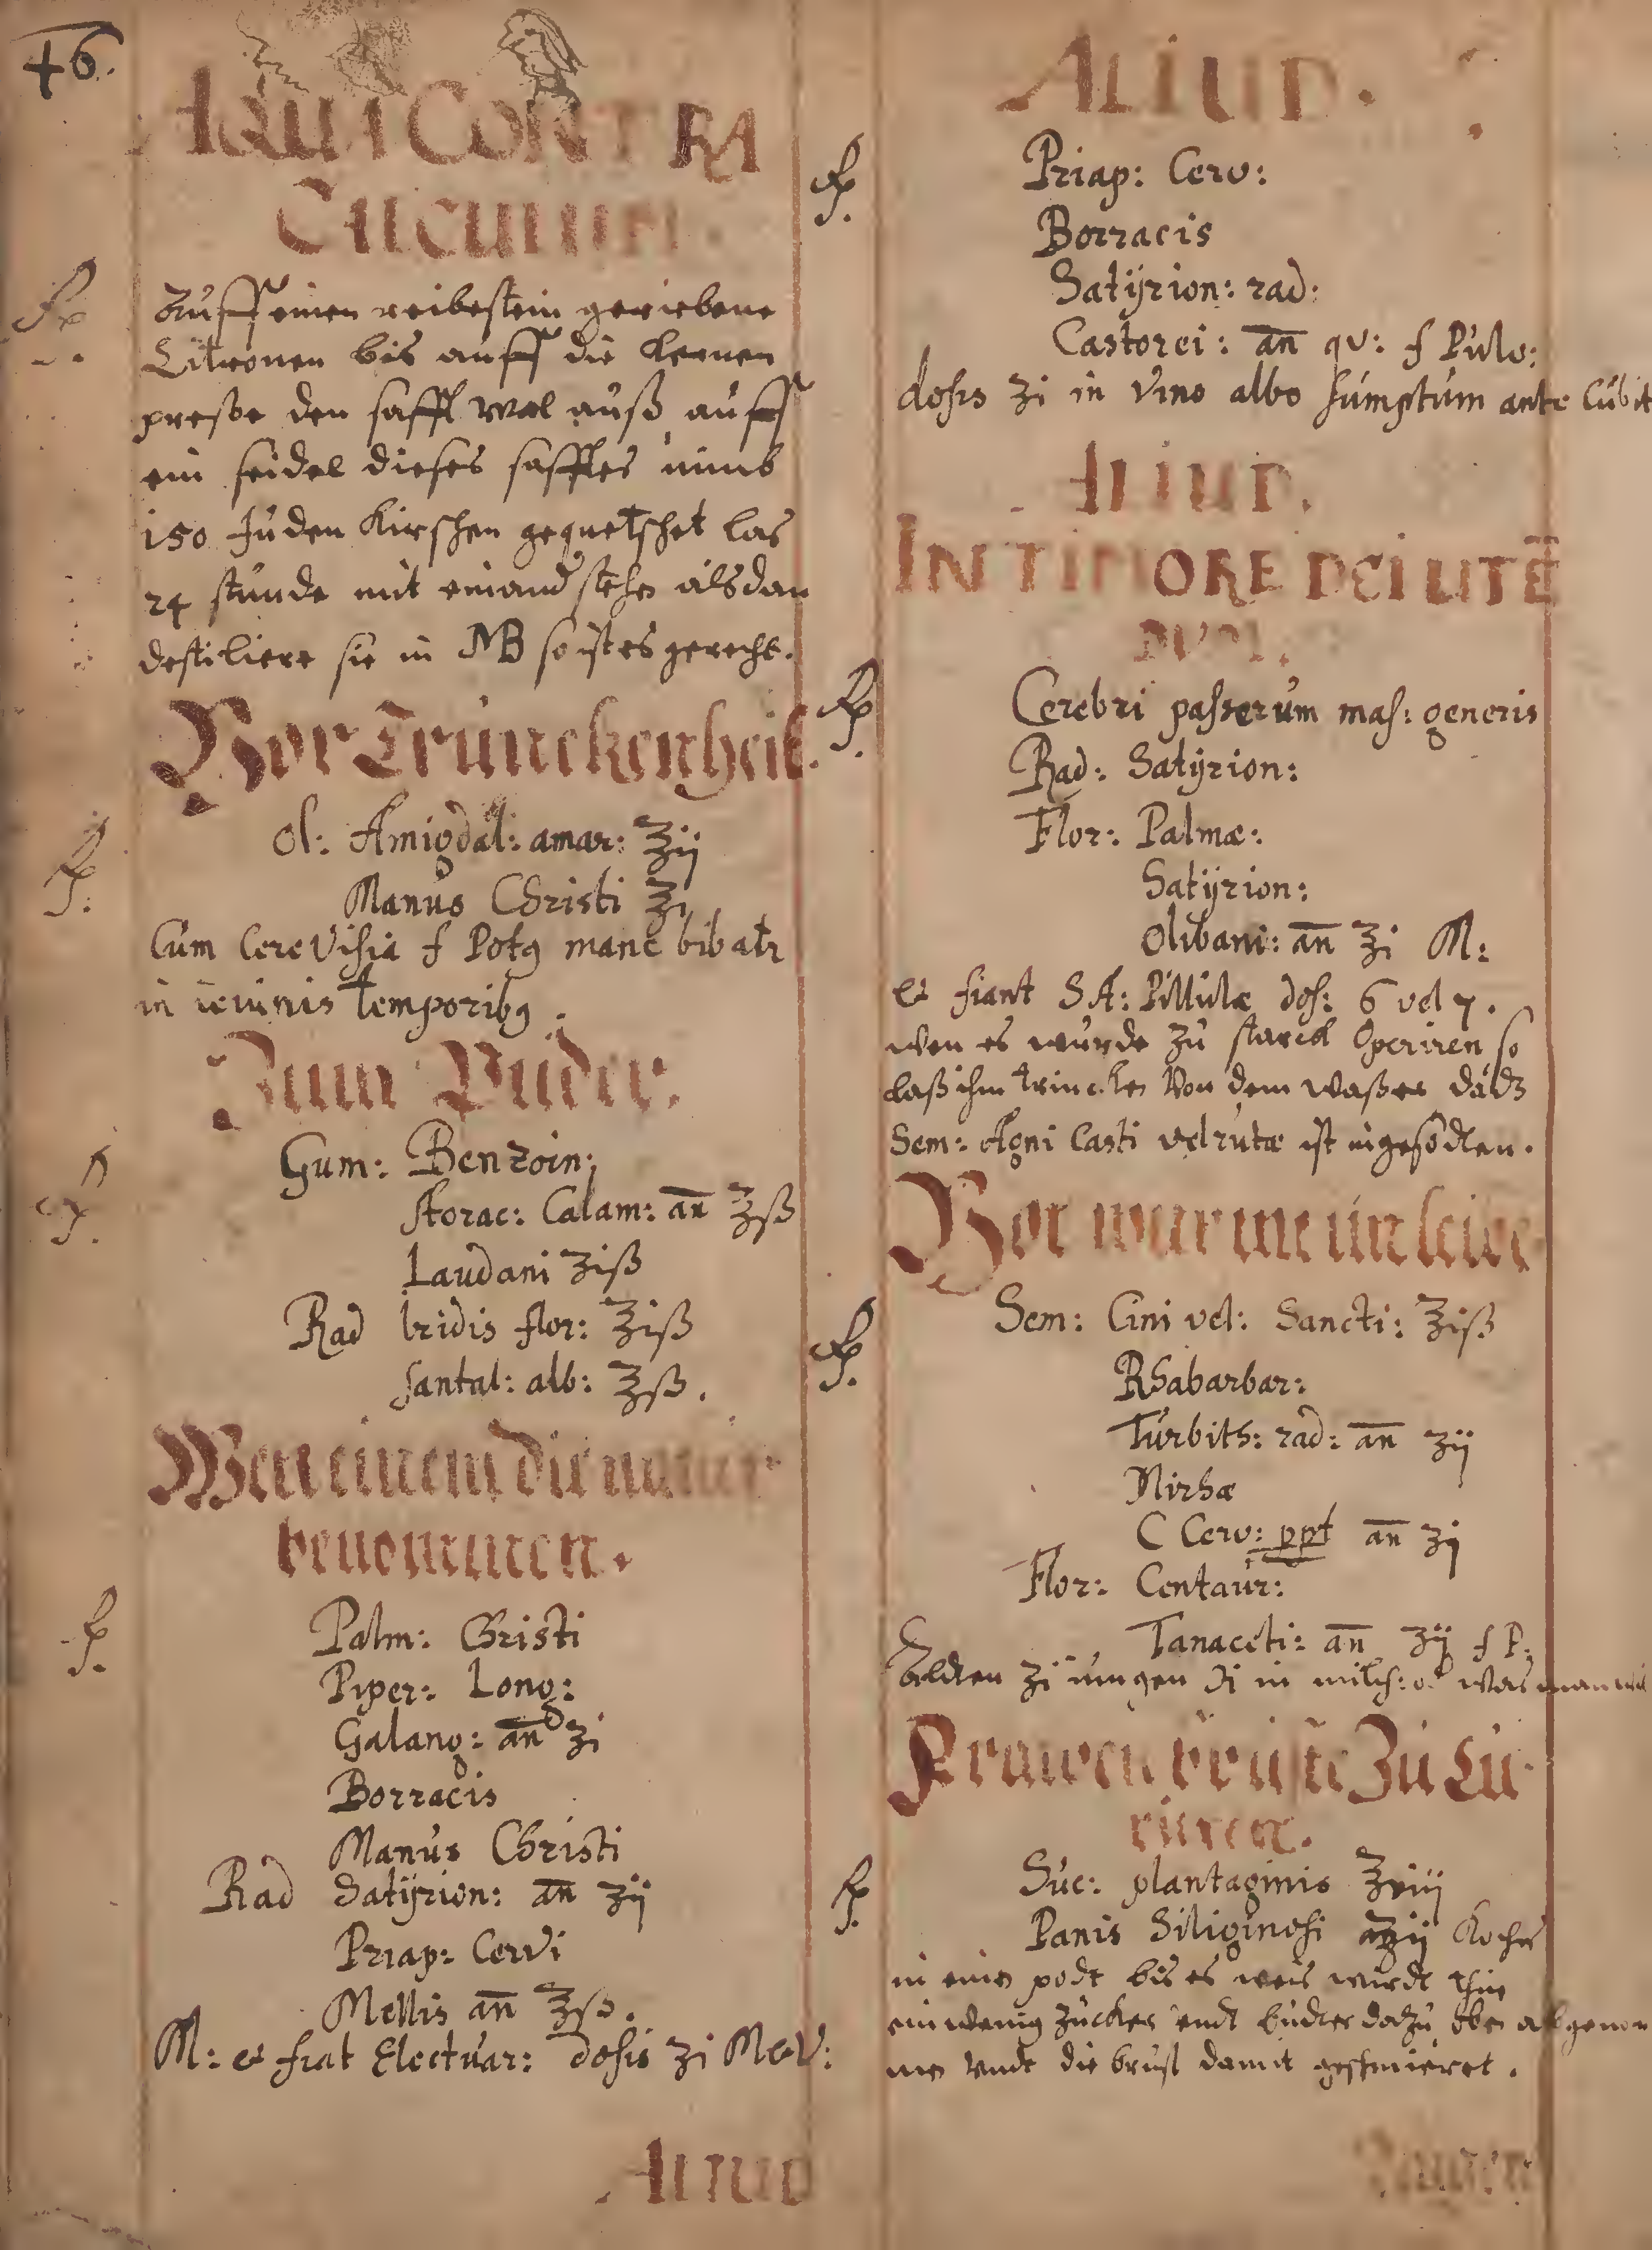 46.
AQUA CONTRA
CALCULUM.
Auff einen reibestein geriebene
Citronen bis auff die kernen
presse den safft wol auß, auff
ein seidel dieses safftes nimb
150 Juden Kirschen gequetschet las
24 stunde mit einand stehen alsdan
destiliere sie in MB so ist es gerecht.
Vor Trunckenheit.
Ol: Amigdal: amar: ʒij
Manus Christi ʒi
Cum Cerevisia f Potꝯ mane bibatr
in ieiunis temporibꝯ.
Zum Puder.
Gum: Benzoin:
storac: Calam: an̅ ʒß
Laudani ʒiß
Rad Iridis flor: ʒiß
santal: alb: ʒß.
Wen einem die natur
benommen.
Palm: Christi
Piper: Long:
Galang: an̅ ʒi
Borracis
Manus Christi
Rad Satÿrion: an̅ ʒij
Priap: Cervi
Mellis an̅ ʒß.
M: et fiat Electuar: dosis ʒi M et V:
ALIUD
ALIUD.
Priap: Cerv:
Borracis
Satÿrion: rad:
Castorei: an̅ qv: f Pulv:
dosis ʒi in Vino albo sumptum ante Cubit
ALIUD.
IN TIMORE DEI UTE̅
Cerebri passerum mas: generis
Rad: Satÿrion:
Flor: Palmæ:
Satÿrion:
Olibani: an̅ ʒi M:
et fiant SA: Pillulæ dos: 6 vel 7.
wen es wurde zu starck Operiren so
laß ihm trincken Von dem waßer dadz
Sem: Agni Casti vel rutæ ist ingesodten.
Vor wurme im leibe
Sem: Cini vel: Sancti: ʒiß
Rhabarbar:
Turbith: rad: an̅ ʒij
Mirhæ
C Cerv: ppt an̅ ʒj
Flor: Centaur:
Tanaceti: an̅ ʒij f P:
Aldten ʒi jungen ℈i in milch: od was man wil
Frawen brüste Zu Cu-
rieren.
Suc: plantaginis ʒviij
Panis Siliginosi ʒij Koche
in eine podt bis es weis wirdt thue
ein wenig zucker undt budter dazu, oben abgenom
men undt die brust damit geschmieret.